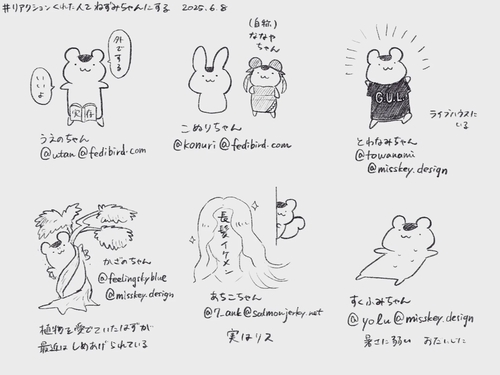 #リアクションくれた人でねずみちゃんにする 2025.6.8
外でする
いいよ
実存
うえのちゃん
@utan@fedibird.com
(自称)
ななや
ちゃん
こめりちゃん
@konuri@fedibird.com
G.U.L
ライブハウスに
いる
とわなみちゃん
@towanami
@misskey.design
かざのちゃん
@feelingskyblue
@misskey.design
植物を愛でていたはずが
最近はしめあげられている
長髪イケメン
あちこちゃん
@7_ank@salmonjerky.net
実はリス
すくふみちゃん
@yolu@misskey.design
暑さに弱い